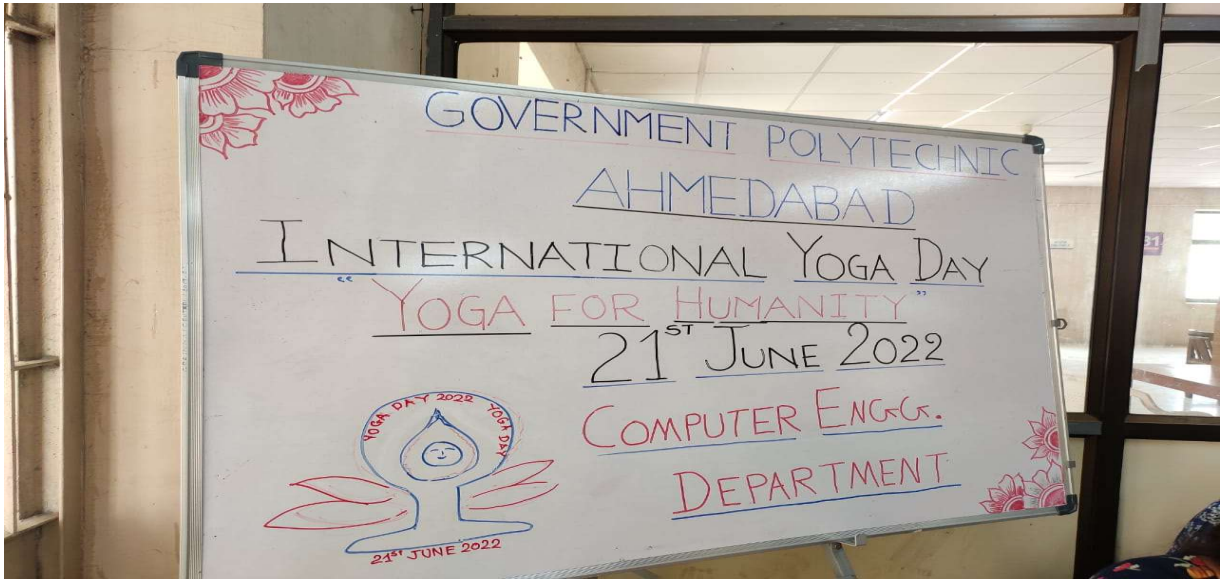 GOVERNMENT POLYTECHNIC
AHMEDABAD
INTERNATIONAL YOGA DAY
“YOGA FOR HUMANITY”
21ST JUNE 2022
COMPUTER ENGG.
DEPARTMENT
YOGA DAY 2022 YOGA DAY
21ST JUNE 2022
31